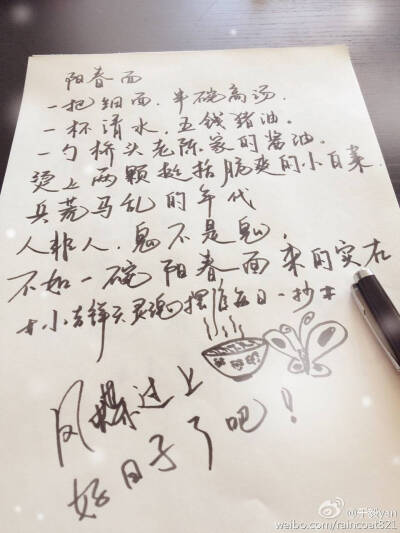 阳春面
一把细面，半碗高汤，
一杯清水，五钱猪油，
一勺桥头老陈家的酱油，
烫上两颗挺括脆爽的小白菜
兵荒马乱的年代
人非人，鬼不是鬼，
不如一碗阳春面来的实在
十小吉祥天灵魂摆渡每日一抄十
风蝶过上
好日子了吧！
@千颖yan
weibo.com/raincoat821